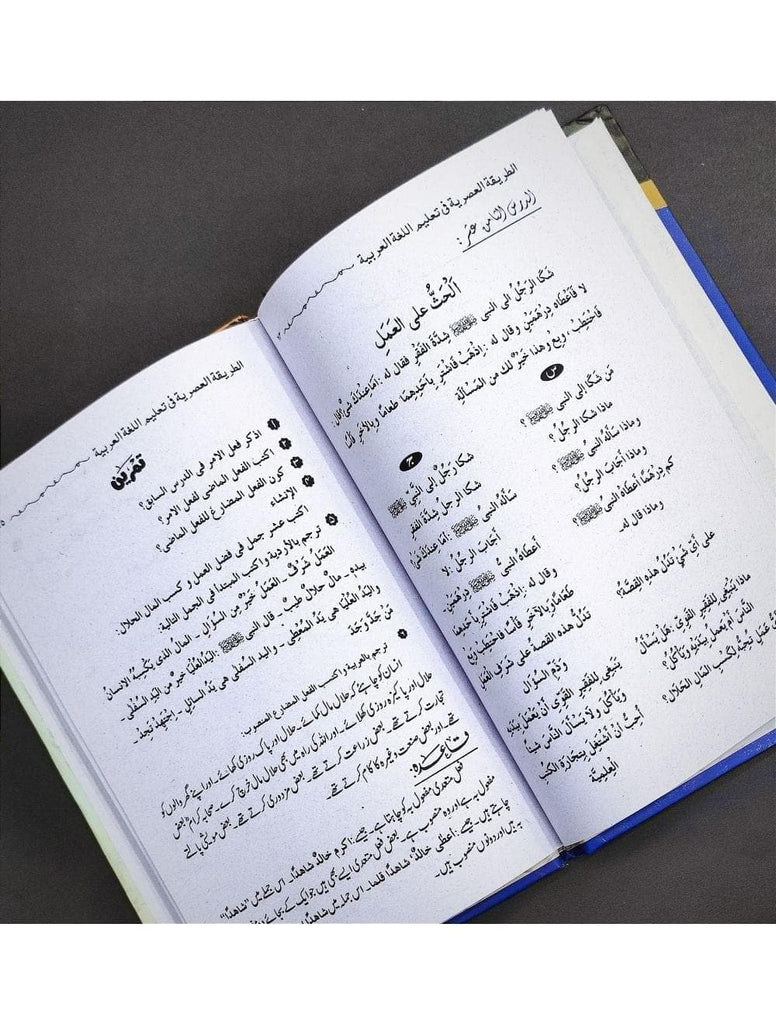 الطريقة العصرية فى تعليم اللغة العربية
الدرس الثامن عشر :
اَلْحَثُّ على العَمَلِ
شَكَا الرَجُلُ الى النبى ﷺ شِدَّةَ الفَقْرِ فقال له : اَمَا عِنْدَكَ شَىْءٌ؟ قَالَ :
لا فَاَعْطَاه دِرْهَمَيْنِ وقال له : اِذْهَبْ فَاشْتَرِ بِاَحَدِهِمَا طَعَامًا وبِالآخَرِ فَأْسًا
فَاحْتَطِبْ ، وبِعْ وهذا خَيْرٌ لك من المَسْأَلَةِ
س
مَن شَكَا الى النبى ﷺ ؟
وماذا شكا الرجلُ؟
وماذا سَأَلَهُ النبىُّ ﷺ ؟
وماذا اَجَابَ الرجلُ؟
كم دِرْهَمًا اَعْطَاهُ النبىُّ ﷺ؟
وماذا قال له۔
على أىِّ شَىْءٍ تَدُلُّ هذه القِصَّةُ؟
ماذا يَنْبَغِى للفقيرِ القوىِّ : هل يَسْأَلُ
النَاسَ اَم يعملُ بِيَدَيْهِ ويَأكُلُ؟
عَمَلٍ تُحِبُّ لِكَسْبِ المَالِ الحَلَالِ؟
ج
شكا رَجُلٌ الى النَّبِىِّ ﷺ
شكا الرجلُ شِدَّةَ الفَقْرِ
سَأَلَهُ النبىُّ ﷺ : اَمَا عِنْدَكَ شَىْءٌ؟
اَجَابَ الرَجُلُ : لا
اَعْطَاهُ النبىُّ ﷺ دِرْهَمَيْنِ۔
وقال له : اِذْهَبْ فَاشْتَرِ بِاَحَدِهِمَا
طَعَامًا وبِالآخَرِ فَأْسًا فَاحْتَطِبْ وَبِعْ
تَدُلُّ هذه القصةُ على شَرَفِ العَمَلِ
وَذَمِّ السُؤَالِ
يَنْبَغِى للفقيرِ القَوِىِّ أَنْ يَعْمَلَ بِيَدَيْهِ
ويَأكُلَ ولا يَسأَلَ النَّاسَ شَيئًا
اُحِبُّ اَنْ اَشْتَغِلَ بِتِجَارَةِ الكُتُبِ
العِلْمِيَّةِ
الطريقة العصرية فى تعليم اللغة العربية
تمرين
١ اذكر فعل الامر فى الدرس السابق؟
٢ اكتب الفعل الماضى لفعل الامر؟
٣ كون الفعل المضارع للفعل الماضى؟
٤ الإنشاء
اكتب عشر جمل فى فضل العمل و كسب المال الحلال۔
٥ ترجم بالأردية واكتب المبتدأ فى الجمل التالية:
العَمَلُ شَرَفٌ۔ العَمَلُ خَيْرٌ مِن السُؤَالِ۔ المالُ الذى يَكْسِبُهُ الانسانُ
بيده۔ مالٌ حلالٌ طيبٌ۔ قال النبى ﷺ : اليدُ العُلْيَا خيرٌ مِن اليَدِ السُفلٰى۔
واليَدُ العُلْيَا هى يَدُ المُعْطِى۔ واليد السفلى هى يَدُ السائِلِ۔ اِجْتَهِدْ تَجِدْ۔
مَنْ جَدَّ وَجَدَ
٦ ترجم بالعربية واكتب الفعل المضارع المنصوب:
انسان کو چاہئے کہ حلال مال کمائے۔ حلال اور پاک روزی کھائے۔ اور اپنے گھر والوں کو
حلال اور پاکیزہ روزی کھلائے۔ اور اللہ کی راہ میں بھی حلال مال خرچ کرے۔ صحابہ کرام بعض
تجارت کرتے تھے۔ بعض زراعت کرتے تھے۔ بعض مزدوری کرتے تھے۔ بعض مویشی پالتے
تھے۔ اور بعض صنعت وغیرہ کا کام کرتے تھے۔
قاعدہ:
فعل متعدی مفعول بہ کو چاہتا ہے۔ جیسے: اکرم خالدٌ شاهدًا۔ اس جملے میں "شاهدًا"
مفعول بہ ہے اور وہ منصوب ہے۔ بعض فعل متعدی ایسے بھی ہیں جو ایک کے بجائے دو
چاہتے ہیں۔ جیسے: أعطى خالدٌ شاهدًا قلما۔ اس جملہ میں شاهدًا
بہ ہیں اور دونوں منصوب ہیں۔